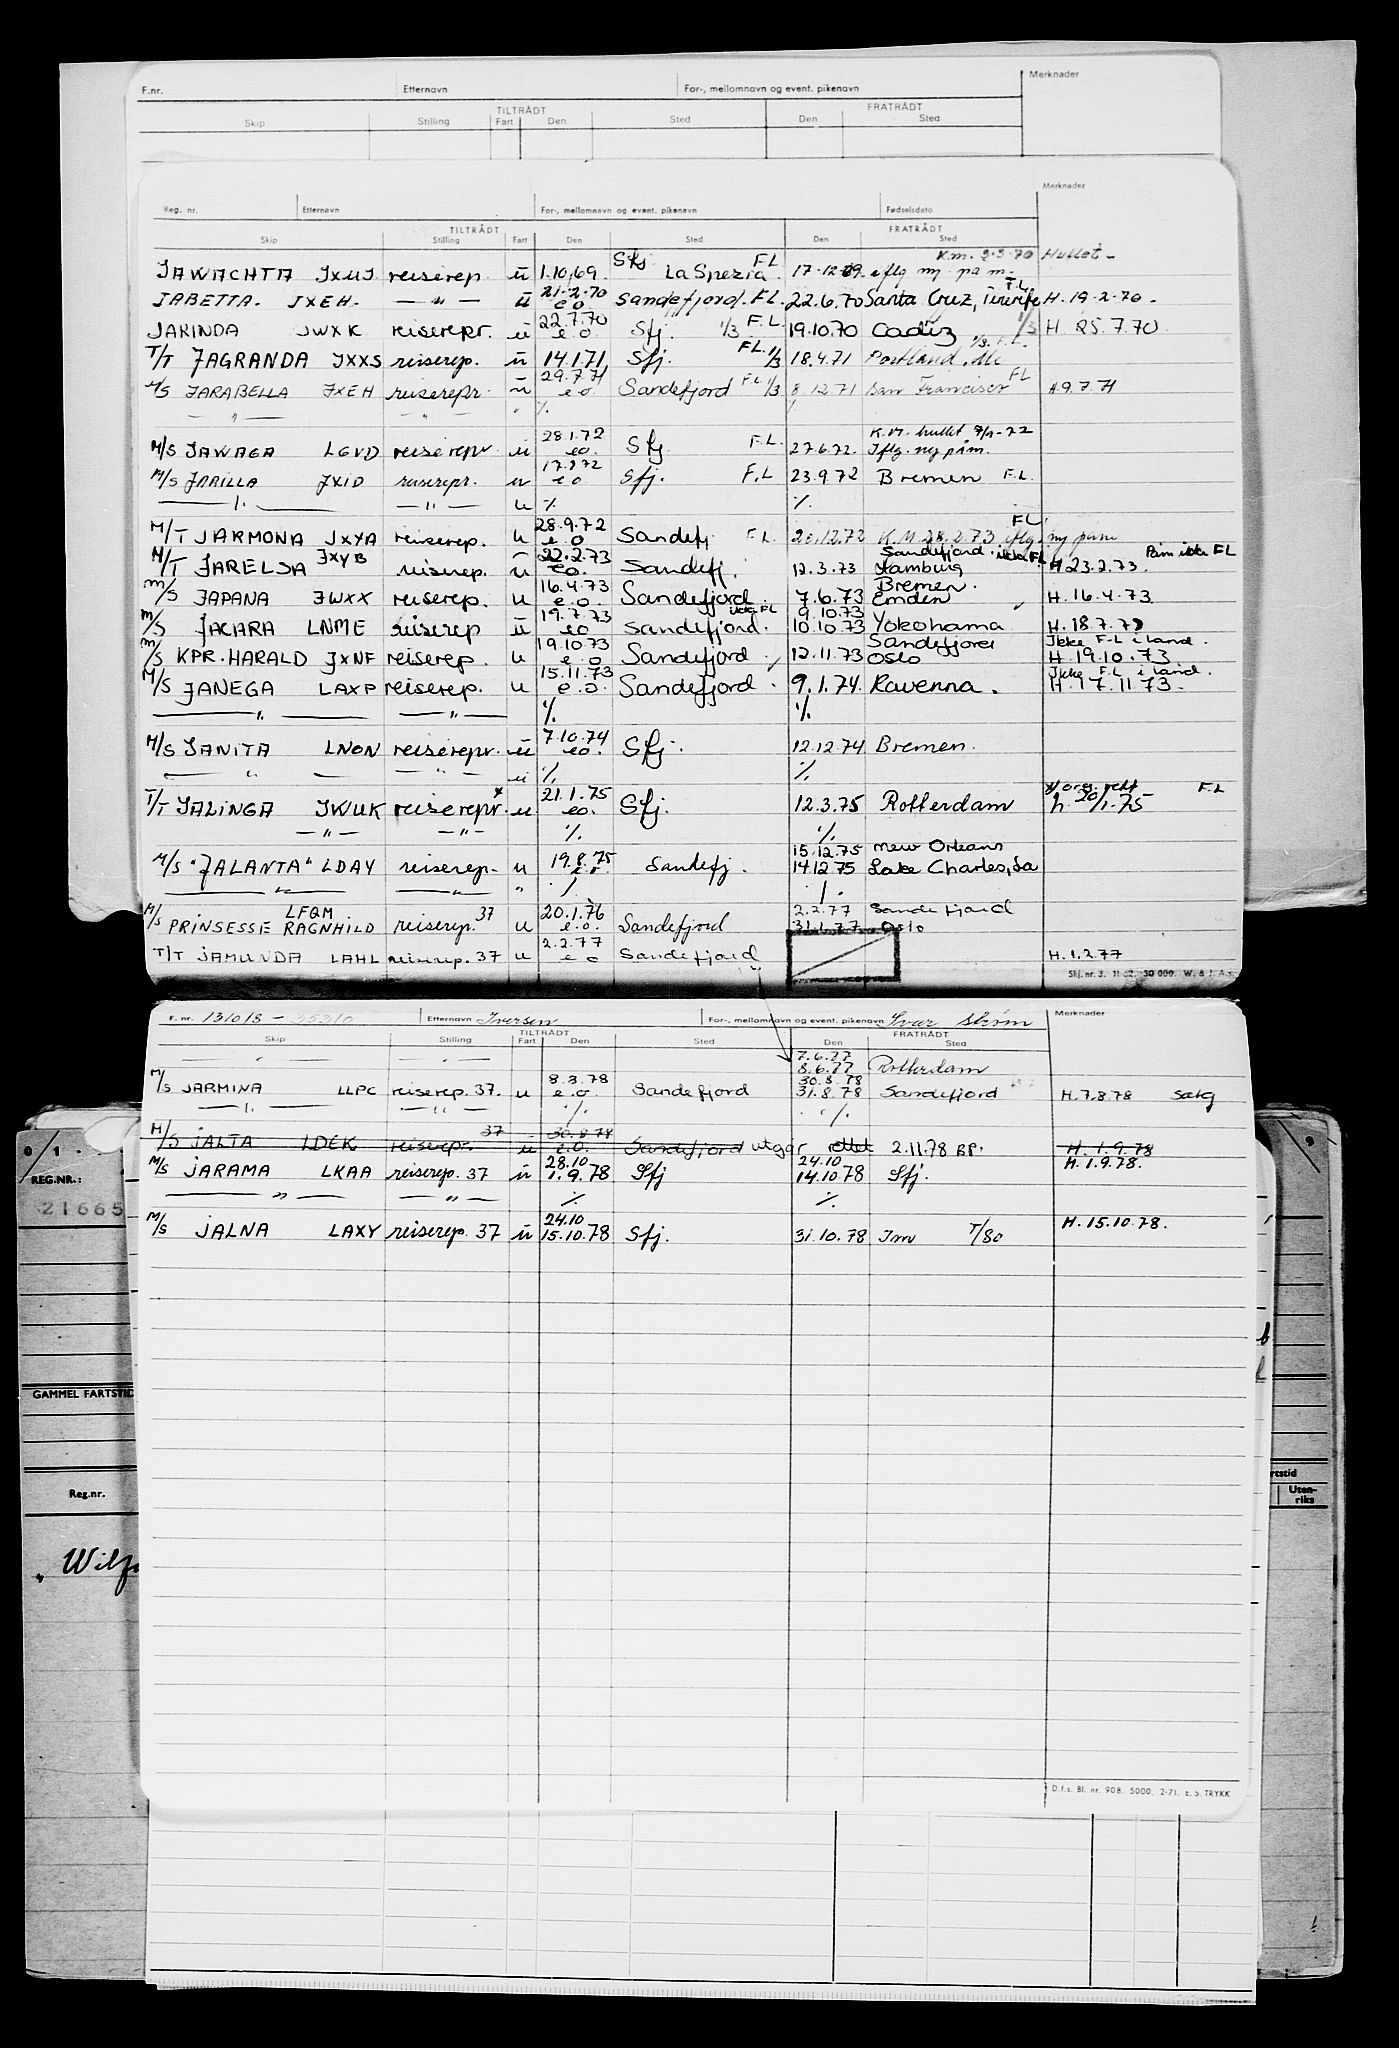 F.nr. Etternavn For-, mellomnavn og event. pikenavn Merknader
TILTRÅDT FRATRÅDT
Skip Stilling Fart Den Sted Den Sted
Merknader
Reg. nr. Etternavn For-, mellomnavn og event. pikenavn Fødselsdato
TILTRÅDT FRATRÅDT
Skip Stilling Fart Den Sted Den Sted
Sfj FL K.m. 9-3-70 Hullet-
JAWACHTA JXUJ reiserep ü 1.10.69. La Spezia. 17.12.69. eflg ny på m.
21.2.70 F.L
JABETTA. JXEH. — " — ü e o Sandefjord. FL. 22.6.70 Santa Cruz, Tenerife H. 19-2-70.
22.7.70
JARINDA JWXK reiserepr. ü e.o. Sfj. 1/3 F.L. 19.10.70 Cadiz 1/3 H. 25.7.70.
1/3. F.L.
T/T JAGRANDA JXXS reiserep. ü 14.1.71. Sfj. FL. 1/3 18.4.71 Portland, Me
29.7.71
M/S JARABELLA JXEH reiserepr. ü e.o. Sandefjord FL 1/3 8.12.71 San Francisco FL H 9.7.71
— " — — " — " % %
28.1.72 K.M. hullet 7/9-72
M/S JAWAGA LGVD reiserepr ü eo. Sfj F.L. 27.6.72. Iflg. ny påm.
17.8.72
M/S JARILLA JXID reiserepr. u e o Sfj. F.L 23.9.72 Bremen F.L.
— " — — " — u % %
28.9.72 FL.
M/T JARMONA JXYA reiserep. u e.o Sandefj F.L. 20.12.72 K.M 28.2.73 iflg. ny påm
22.2.73 Sandefjord. ikke FL Påm ikke FL
M/T JARELSA JXYB reiserep. ü eo. Sandefj. 12.3.73 Hamburg H 23.2.73.
16.4.73 Bremen.
M/S JAPANA JWXX reiserep. u e.o. Sandefjord. 7.6.73 Emden H. 16.4.73
19.7.73 ikke FL 9.10.73
M/S JACARA LNME reiserep ü eo Sandefjord. 10.10.73 Yokohama H. 18.7.73
19.10.73 Sandefjord Ikke F-L i land.
M/S KPR. HARALD JXNF reiserep. u e.o Sandefjord 12.11.73 Oslo H. 19.10.73
15.11.73 Ikke F.L i land.
M/S JANEGA LAXP reiserep. u e.o. Sandefjord. 9.1.74. Ravenna. H. 17.11.73.
— " — — " — % %
7.10.74
M/S JANITA LNON reiserepr. ü eo. Sfj. 12.12.74 Bremen.
— " — — " — ü % %
21.1.75 F.L
T/T JALINGA JWUK reiserepr. u eo. Sfj. 12.3.75 Rotterdam h. 20/1.75
— " — — " — % %
15.12.75 New Orleans
M/S "JALANTA" LDAY reiserep. u 19.8.75 e.o. Sandefj. 14.12.75 Lake Charles, La
— " — — " — " % %
LFQM 20.1.76 2.2.77 Sandefjord
M/S PRINSESSE RAGNHILD reiserep. 37 u e.o. Sandefjord 31.1.77 Oslo
2.2.77
T/T JAMUNDA LAHL reiserep. 37 u e o Sandefjord H. 1.2.77
Skj. nr. 3. 11-62. 30 000. W. & J. A.s.
F. nr. 131018 - 35310 Etternavn Iversen For-, mellomnavn og event. pikenavn Ivar Strøm Merknader
TILTRÅDT FRATRÅDT
Skip Stilling Fart Den Sted Den Sted
7.6.77
— " — — " — 8.6.77 Rotterdam
8.8.78 30.8.78
M/S JARMINA LLPC reiserep. 37. u e.o. Sandefjord 31.8.78 Sandefjord H. 7.8.78
— " — — " — % %
30.8.78
M/S JALTA LDEK reiserep. 37 ü e.o. Sandefjord utgår rettet 2.11.78 BP. H. 1.9.78
28.10 24.10 H. 1.9.78.
M/S JARAMA LKAA reiserep. 37 ü 1.9.78 Sfj 14.10.78 Sfj.
— " — — " — % %
24.10
M/S JALNA LAXY reiserep. 37 ü 15.10.78 Sfj. 31.10.78 Im T/80 H. 15.10.78.
D.f.s. Bl. nr. 908. 5000. 2-71. E.S. TRYKK
REG.NR.:
21665
GAMMEL FARTSTID
Reg.nr.
rtstid
Uten-
riks